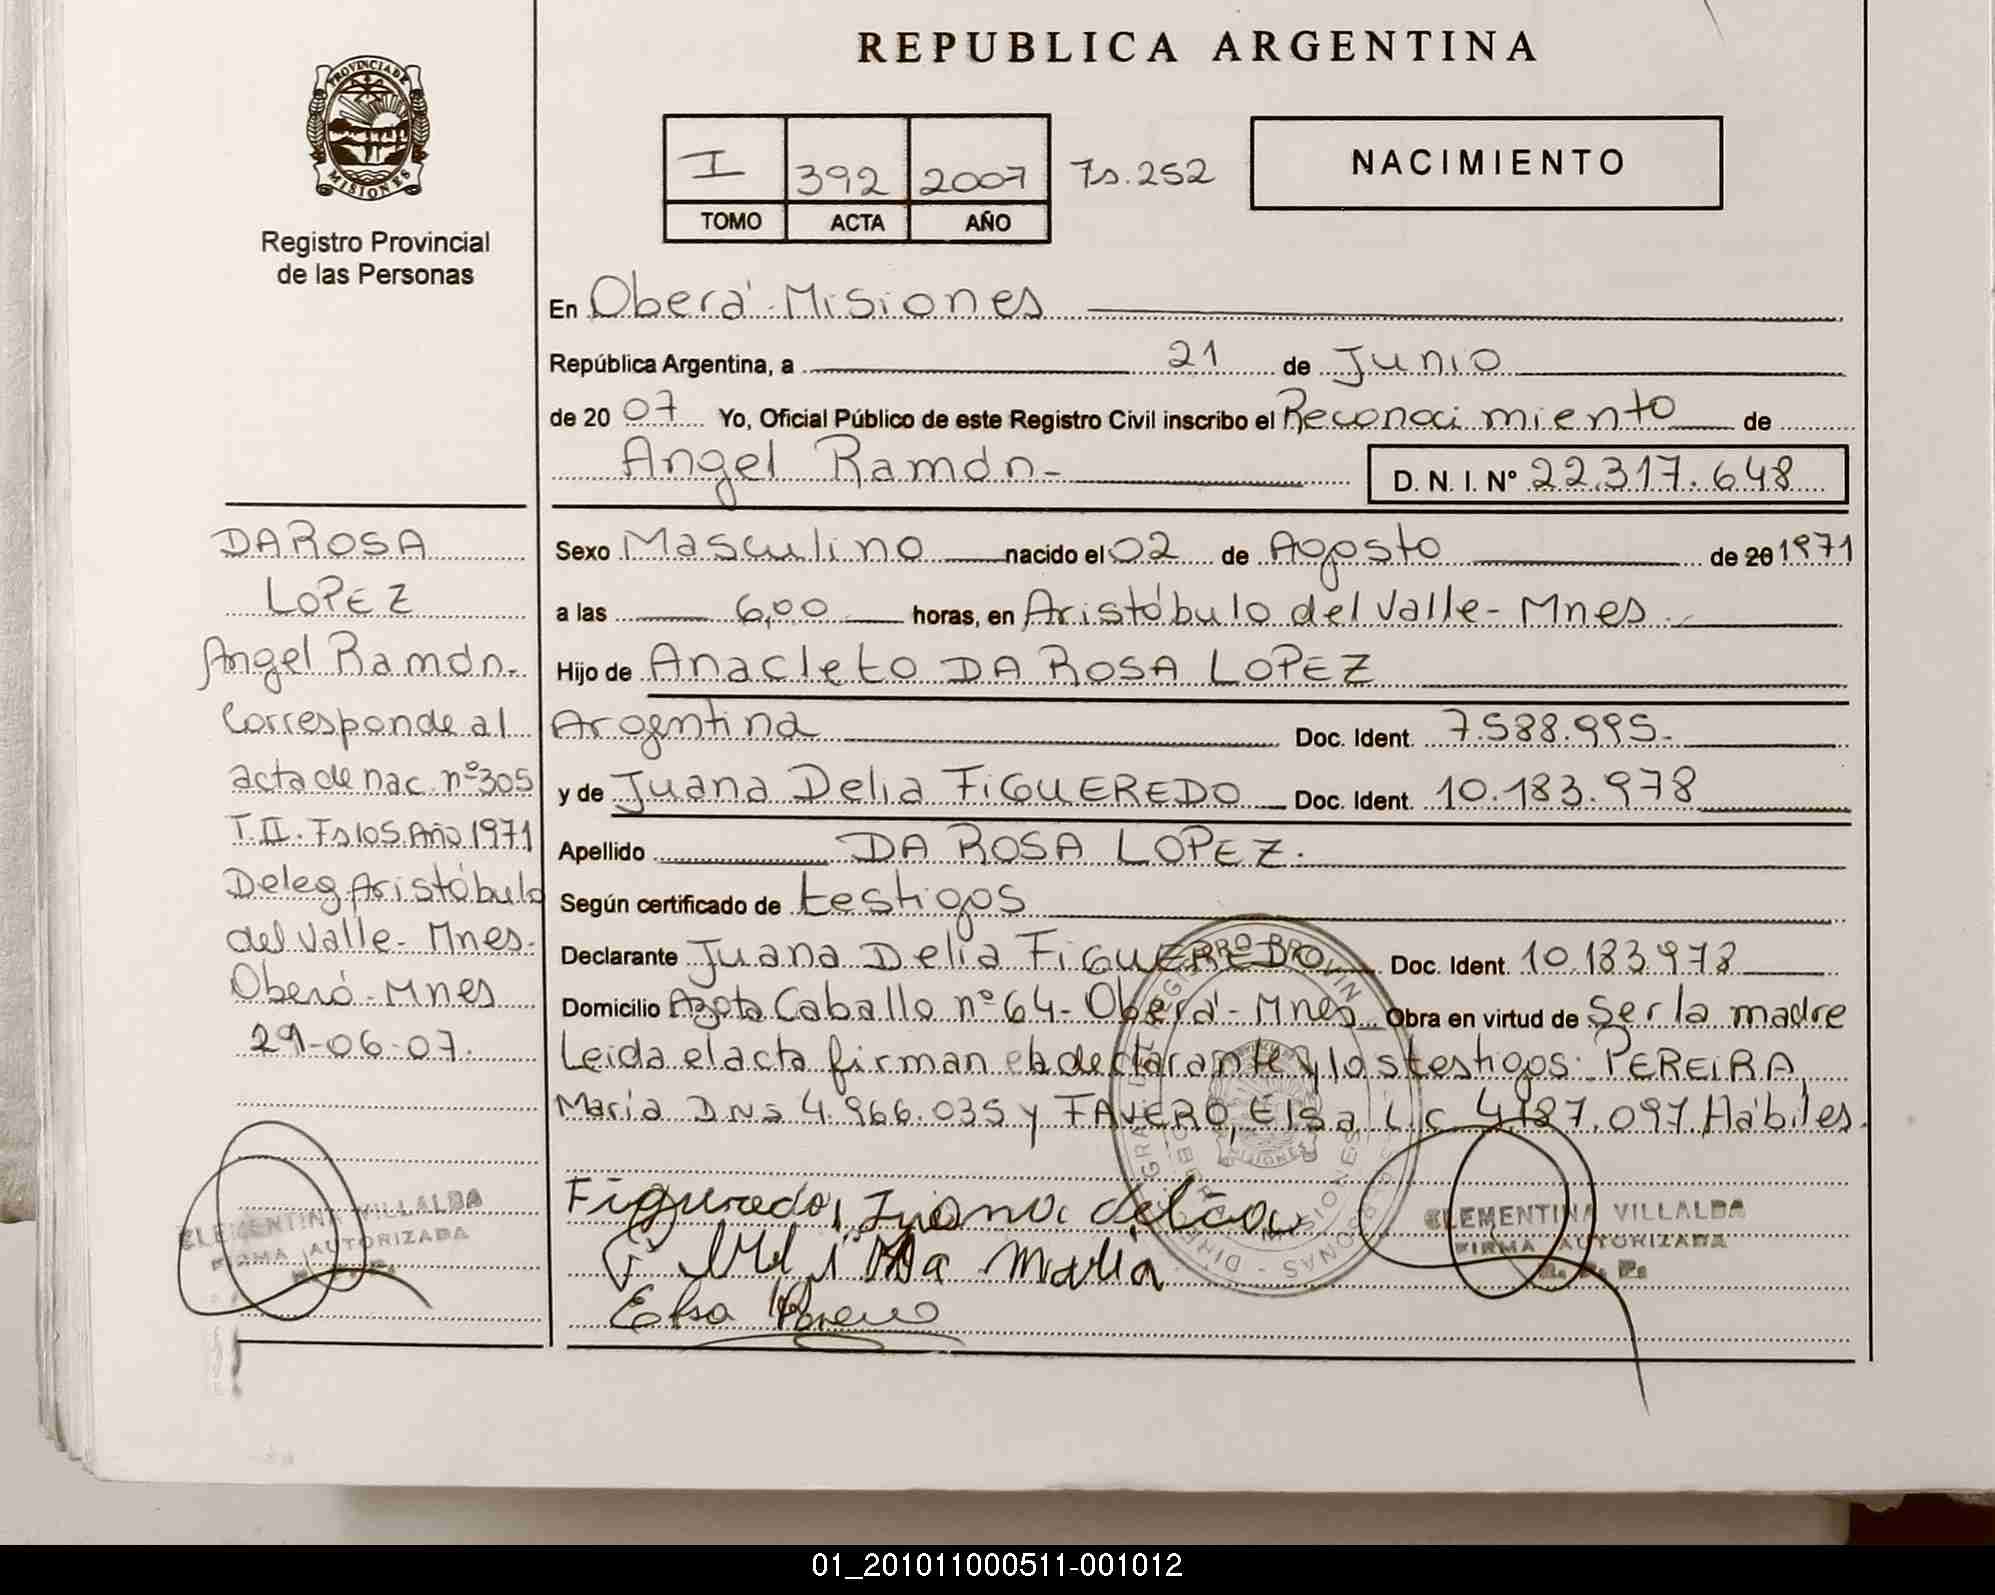 REPUBLICA ARGENTINA
PROVINCIA DE MISIONES
Registro Provincial
de las Personas
I 392 2007 Fs.252
TOMO ACTA AÑO
NACIMIENTO
En Oberá - Misiones
República Argentina, a 21 de Junio
de 20 07 Yo, Oficial Público de este Registro Civil inscribo el Reconocimiento de
Angel Ramón- D. N. I. Nº 22.317.648
Sexo Masculino nacido el 02 de Agosto de 20 1971
a las 6,00 horas, en Aristóbulo del Valle- Mnes.
Hijo de Anacleto DA ROSA LOPEZ
Argentina Doc. Ident. 7.588.995.-
y de Juana Delia FIGUEREDO Doc. Ident. 10.183.978
Apellido DA ROSA LOPEZ.
Según certificado de testigos
Declarante Juana Delia FIGUEREDO Doc. Ident. 10.183.978
Domicilio Azota Caballo nº 64- Oberá - Mnes Obra en virtud de Ser la madre
Leida el acta firman la declarante y los testigos: PEREIRA,
María DNI 4.966.035 y FAVERO, Elsa L.C 4.187.097 Hábiles.
Figueredo, Juana delia
Maria
Elsa
CLEMENTINA VILLALBA
FIRMA AUTORIZADA
R. P. P.
DA ROSA
LOPEZ
Angel Ramón.-
Corresponde al
acta de nac. nº 305
T.II. Fs 105 Año 1971
Deleg. Aristóbulo
del Valle- Mnes.-
Oberá - Mnes
29-06-07.
CLEMENTINA VILLALBA
FIRMA AUTORIZADA
01_201011000511-001012